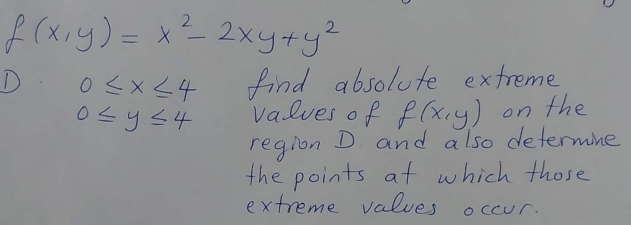 f(x,y) = x² - 2xy + y²
D 0 ≤ x ≤ 4 find absolute extreme
0 ≤ y ≤ 4 values of f(x,y) on the
region D. and also determine
the points at which those
extreme values occur.